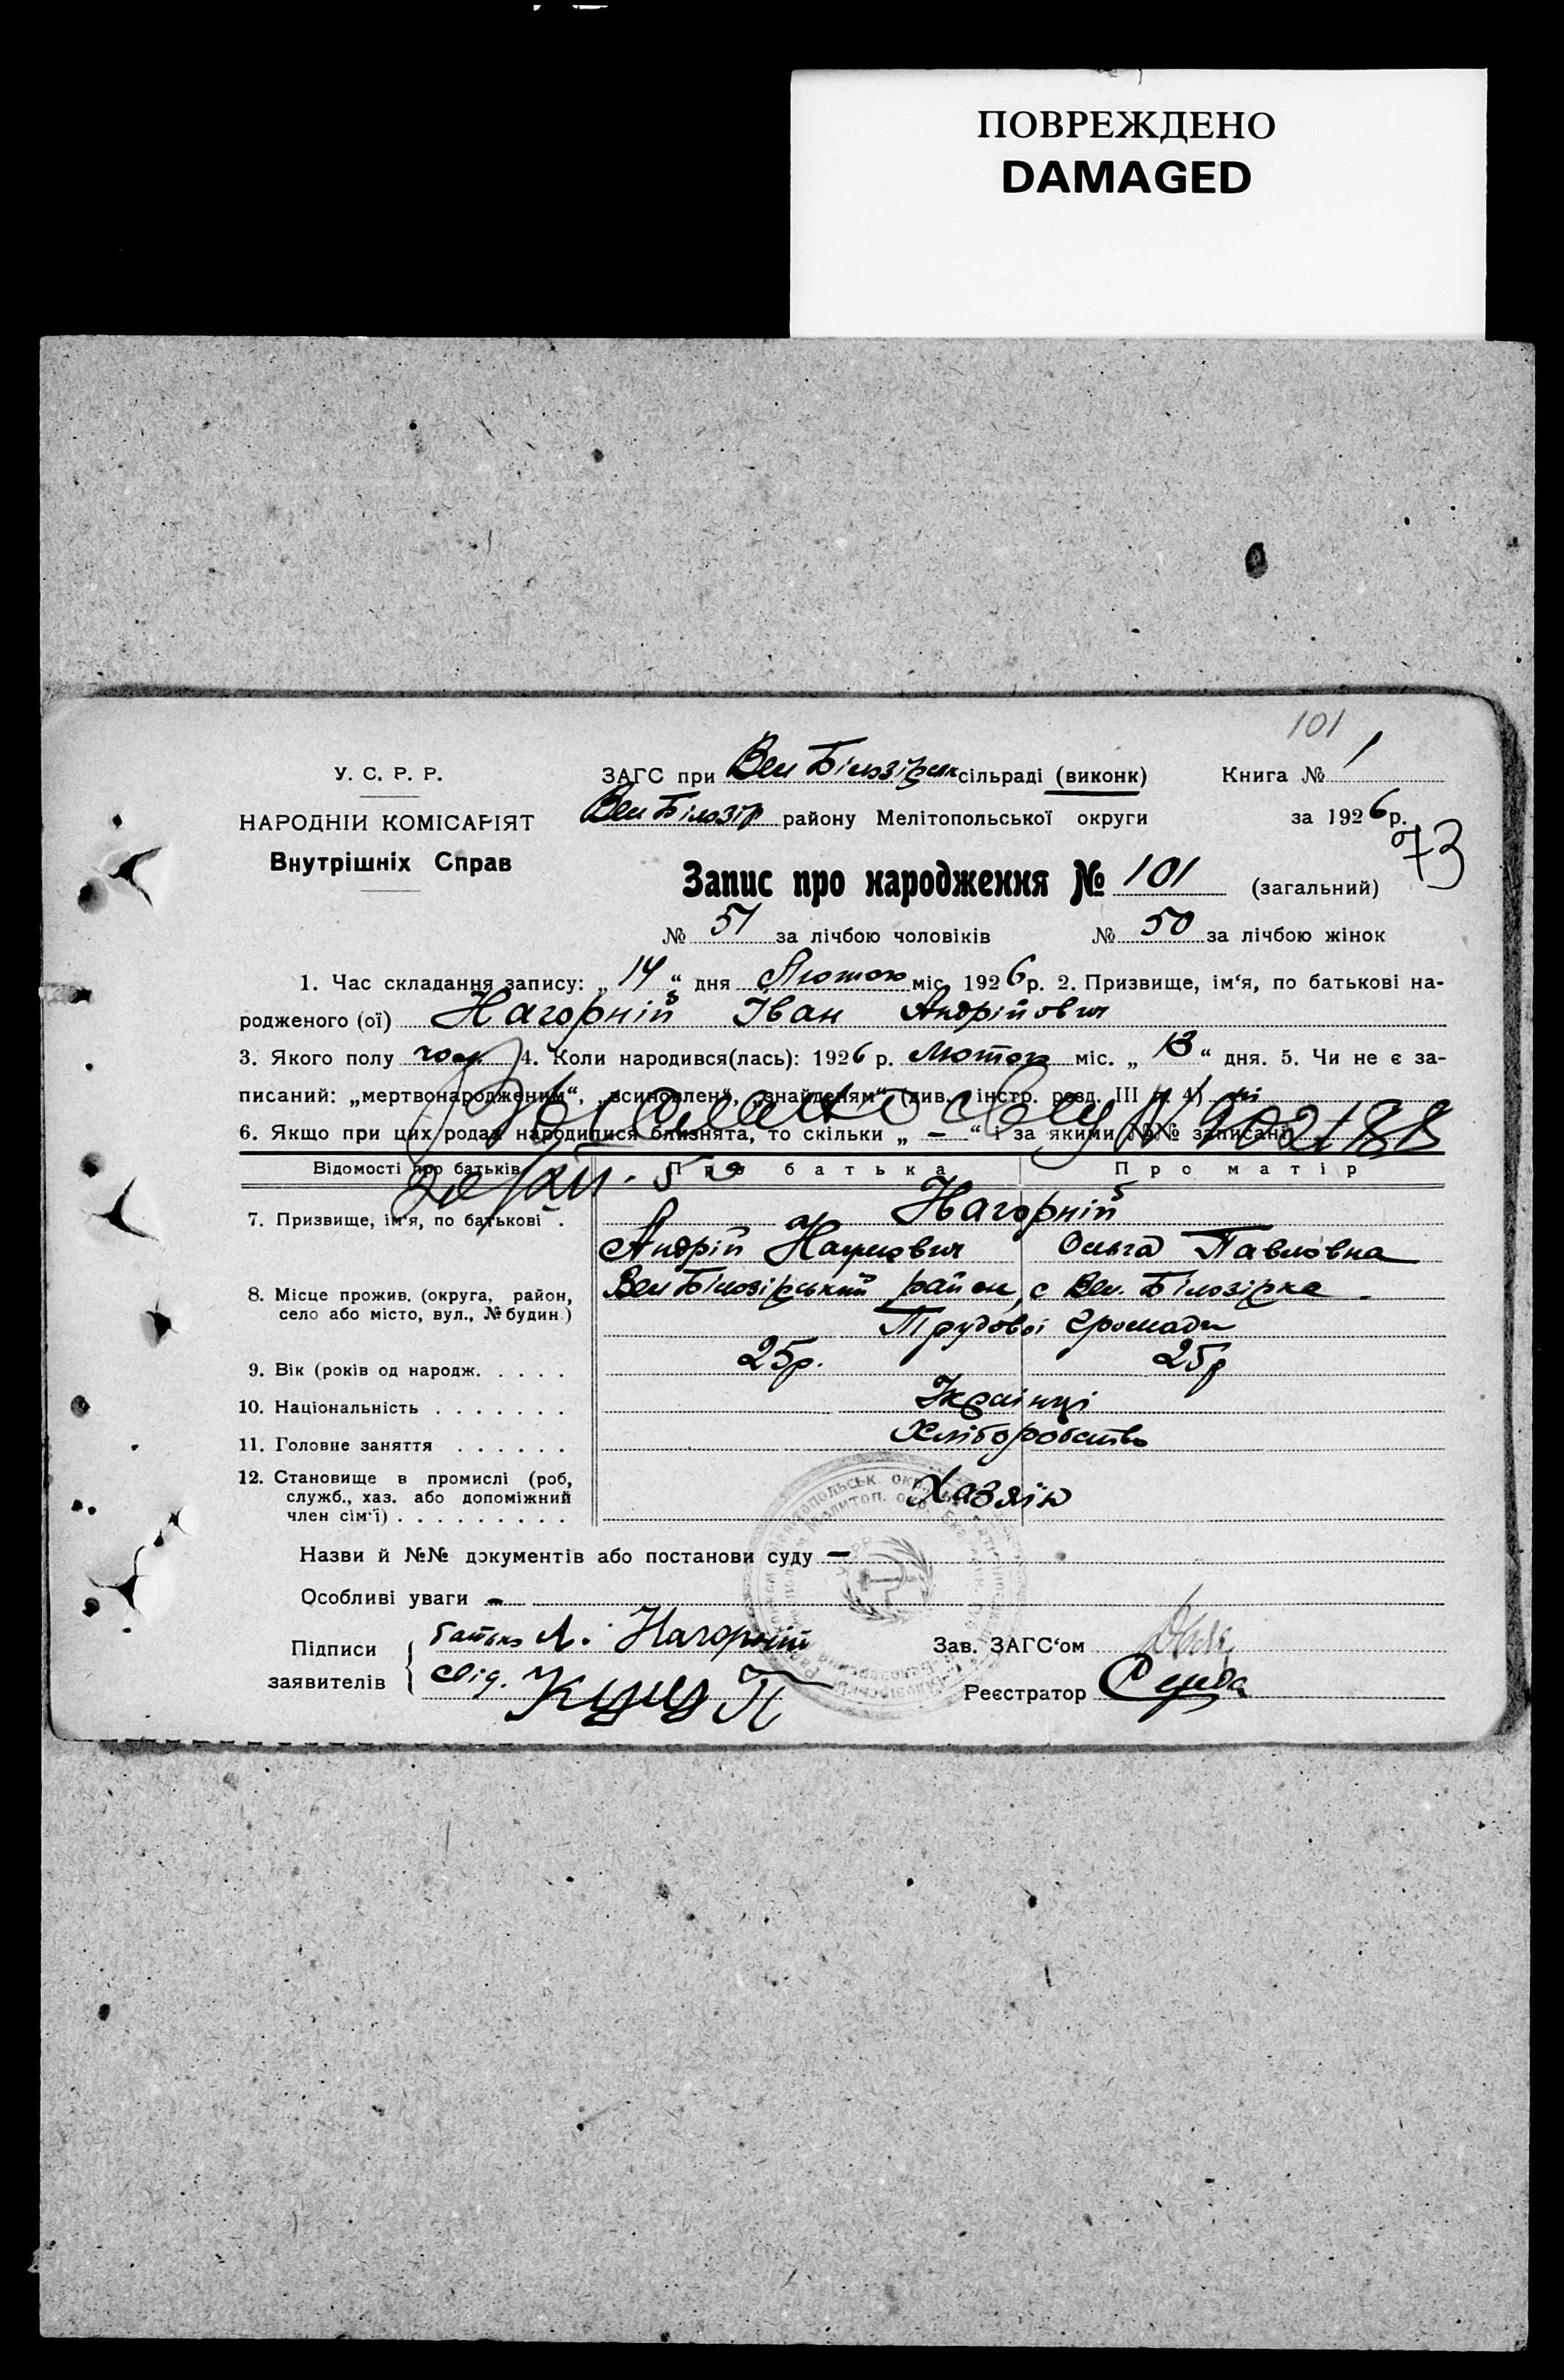 ПОВРЕЖДЕНО
DAMAGED
101
У. С. Р. Р.
ЗАГС при Вел Білозірськ сільраді (виконк) Книга № 1
НАРОДНІЙ КОМІСАРІЯТ
Вел Білозір району Мелітопольської округи за 1926 р.
73
Внутрішніх Справ
Запис про народження № 101 (загальний)
№ 51 за лічбою чоловіків № 50 за лічбою жінок
1. Час складання запису: „14“ дня Лютого міс. 1926 р. 2. Призвище, ім‘я, по батькові на-
родженого (ої) Нагорній Іван Андрійович
3. Якого полу чол 4. Коли народився(лась): 1926 р. Лютого міс. „13“ дня. 5. Чи не є за-
писаний: „мертвонародженим“, „всиновлен“, „знайденям“ (див. інстр. розд. III п. 4) ні
6. Якщо при цих родах народилися близнята, то скільки „ – “ і за якими №№ записані
Відомості про батьків Про батька Про матір
7. Призвище, ім‘я, по батькові . Нагорній
Андрій Ольга Павловна
8. Місце прожив. (округа, район, Вел Білозірський район, с Вел. Білозірка
село або місто, вул., № будин.) Трудової громади
9. Вік (років од народж. . . . . 25р. 25р
10. Національність . . . . . . . Українці
11. Головне заняття . . . . . . Хліборобство
12. Становище в промислі (роб, Хазяїн
служб., хаз. або допоміжний
член сім‘ї) . . . . . . . . .
Назви й №№ документів або постанови суду –
Особливі уваги –
Підписи батько А. Нагорній Зав. ЗАГС‘ом
заявителів свід. Куц П Реєстратор Середа